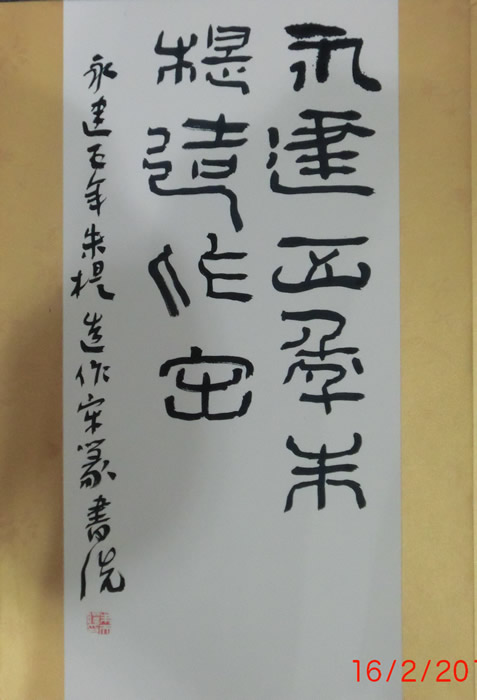 永建五年朱
提造作牢
永建五年朱提造作牢篆書洗
16/2/201